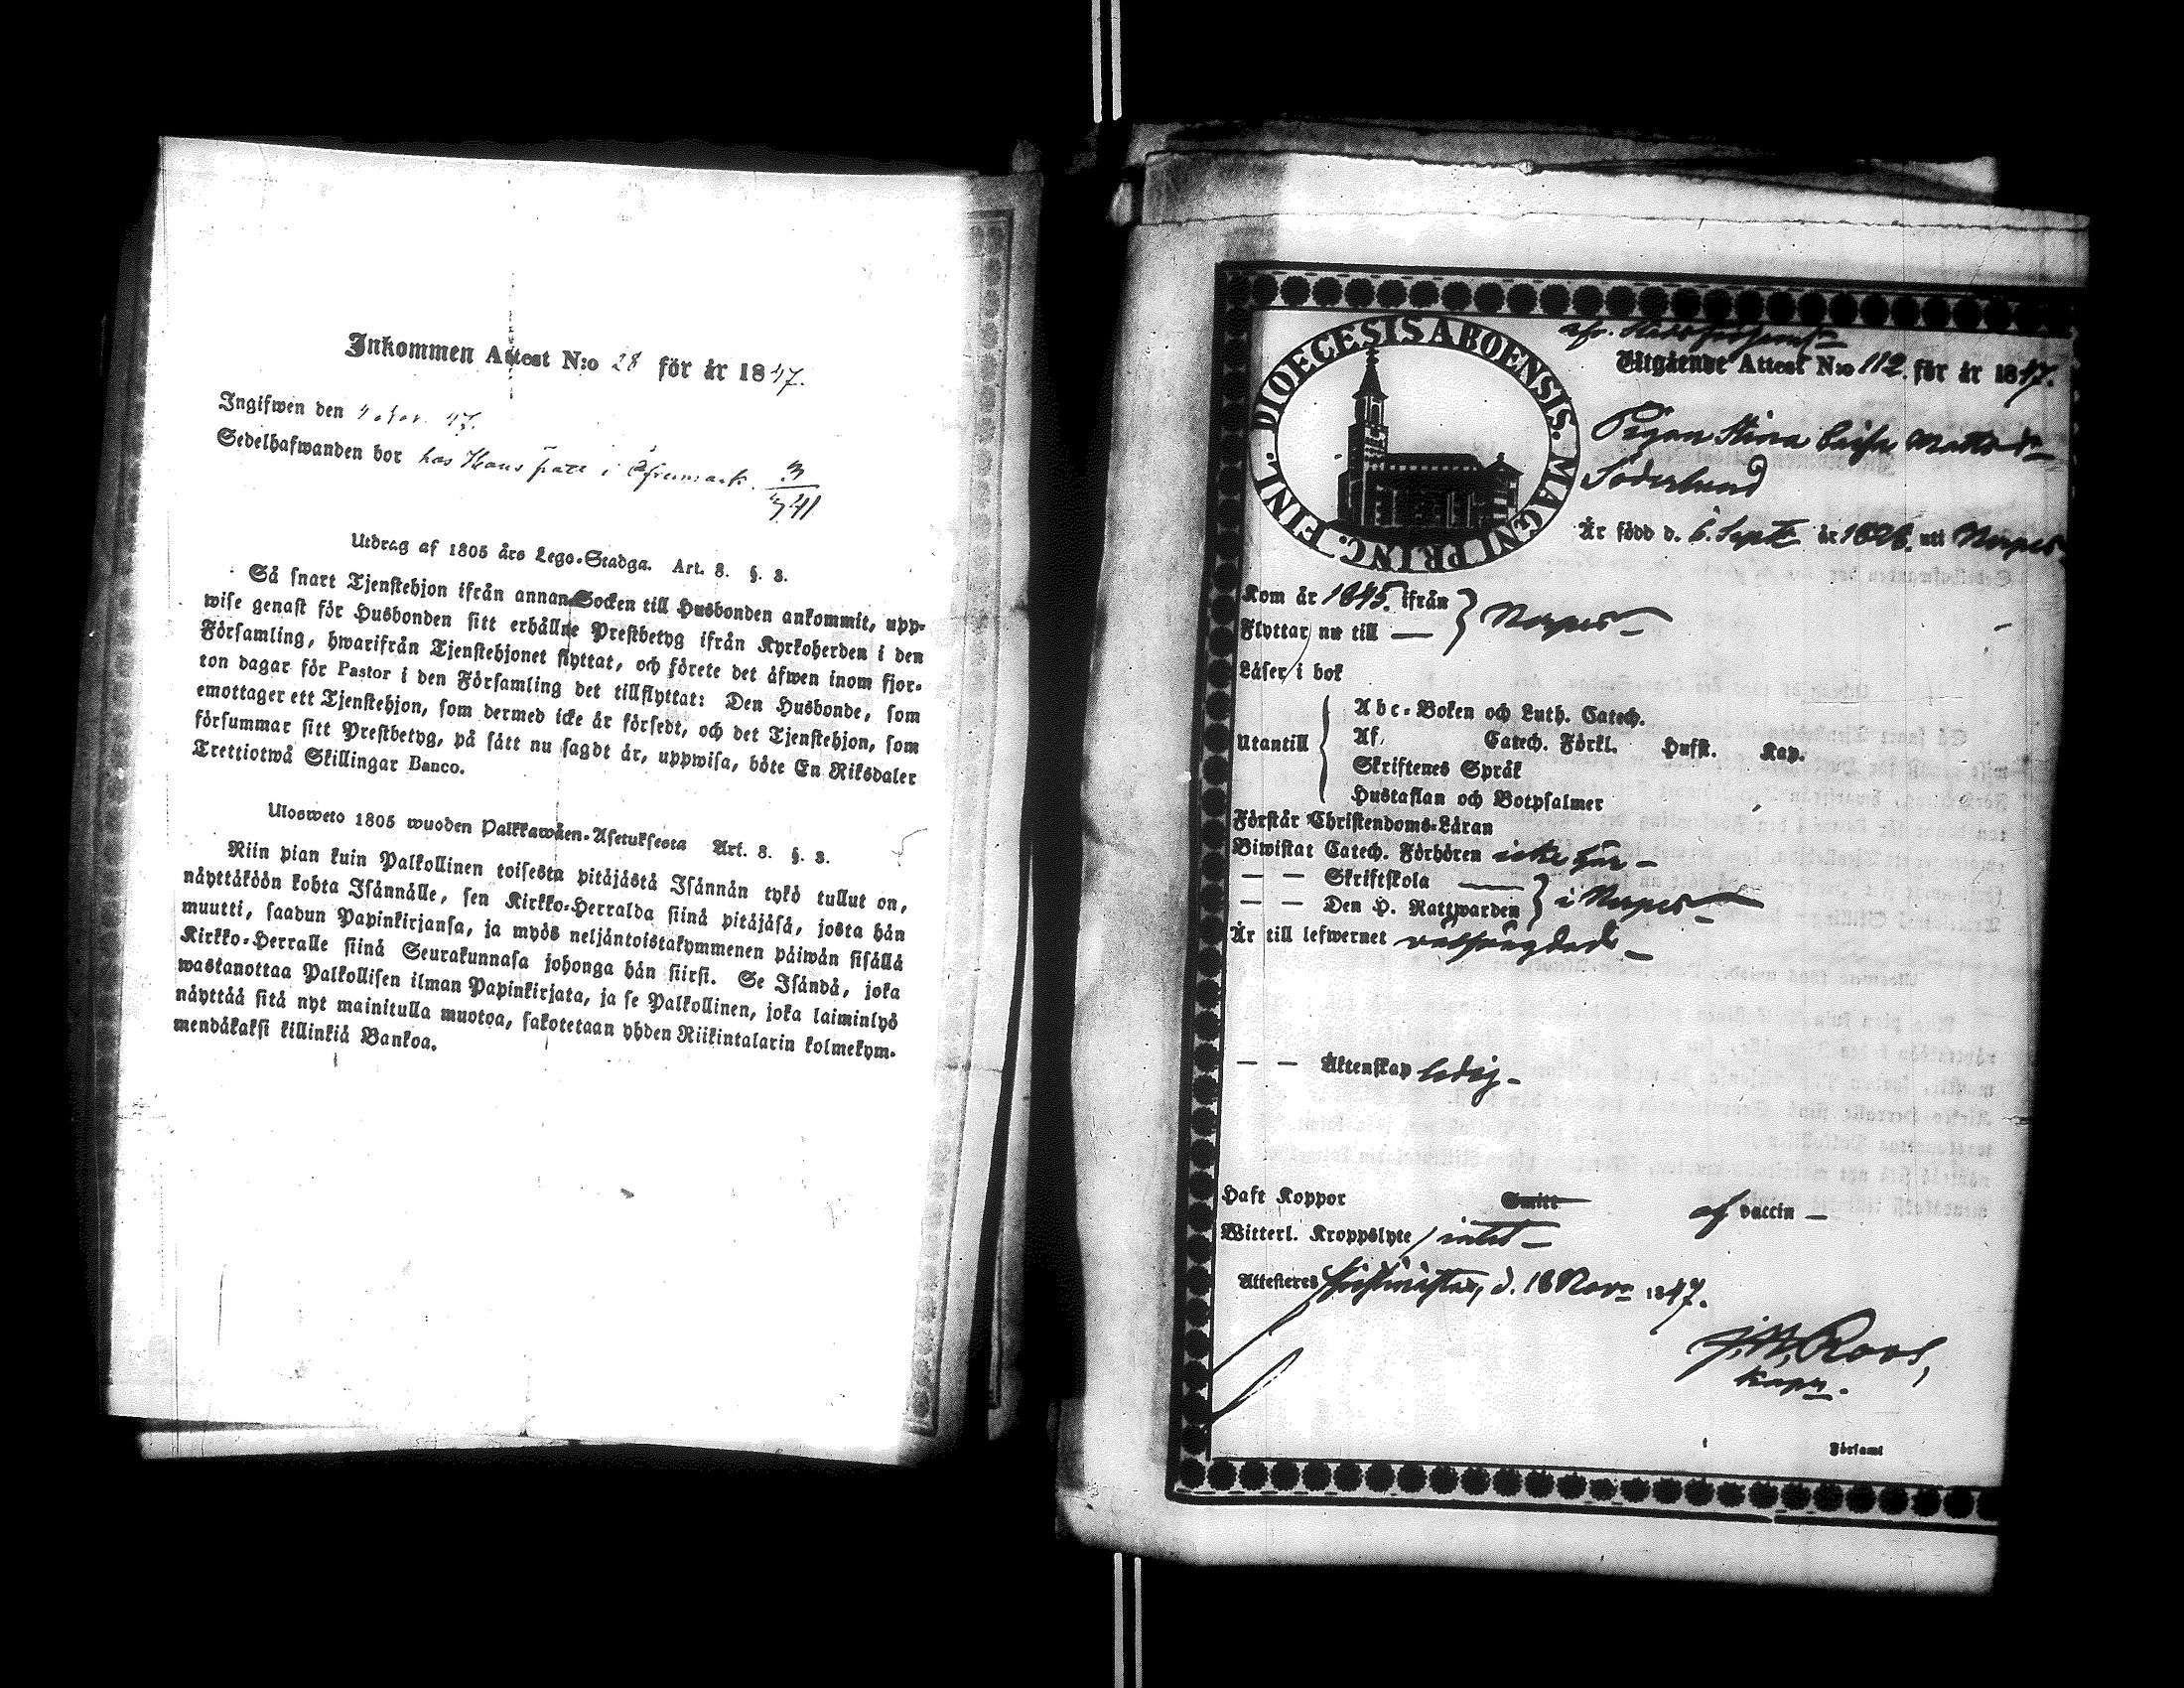 Inkommen Attest N:o 28 för år 1847.
Ingifwen den 47.
Sedelhafwanden bor hos Hans i
3
41
Utdrag af 1805 års Lego-Stadga. Art. 8. §. 3.
Så snart Tjenstehjon ifrån annan Socken till Husbonden ankommit, upp-
wise genast för Husbonden sitt erhållne Prestbetyg ifrån Kyrkoherden i den
Församling, hwarifrån Tjenstehjonet flyttat, och förete det äfwen inom fjor-
ton dagar för Pastor i den Församling det tillflyttat: Den Husbonde, som
emottager ett Tjenstehjon, som dermed icke är försedt, och det Tjenstehjon, som
försummar sitt Prestbetyg, på sätt nu sagdt är, uppwisa, böte En Riksdaler
Trettiotwå Skillingar Banco.
Ulosweto 1805 wuoden Palkkawäen-Asetuksesta Art. 8. §. 3.
Niin pian kuin Palkollinen toisesta pitäjästä Isännän tykö tullut on,
näyttäköön kohta Isännälle, sen Kirkko-Herralda siinä pitäjäsä, josta hän
muutti, saadun Papinkirjansa, ja myös neljäntoistakymmenen päiwän sisällä
Kirkko-Herralle siinä Seurakunnasa johonga hän siirsi. Se Isändä, joka
wastanottaa Palkollisen ilman Papinkirjata, ja se Palkollinen, joka laiminlyö
näyttää sitä nyt mainitulla muotoa, sakotetaan yhden Riikintalarin kolmekym-
mendäkaksi killinkiä Bankoa.
DIOECESIS ABOENSIS. MAGNI PRINC. FINL.
Utgående Attest N:o 112. för år 1847.
Pigan Stina Caisa Mattsdr
Söderlund
Är född d. 6. Sept. år 1826. uti Nerpes
Kom år 1845. ifrån } Nerpes
Flyttar nu till —
Läser i bok
Abc-Boken och Luth. Catech.
Utantill Af Catech. Förkl. Hust. Kap.
Skriftenes Språk
Hustaflan och Botpsalmer
Förstår Christendoms-Läran
Biwistat Catech. Förhören icke här —
— — Skriftskola —
— — Den H. Nattwarden } i Nerpes
Är till lefwernet välfrägdad —
— — Äktenskap ledig —
Haft Koppor Smitt af vaccin —
Witterl. Kroppslyte intet —
Attesteras d. 18 Nov. 1847.
J. W. Roos,
Kapn.
Församl